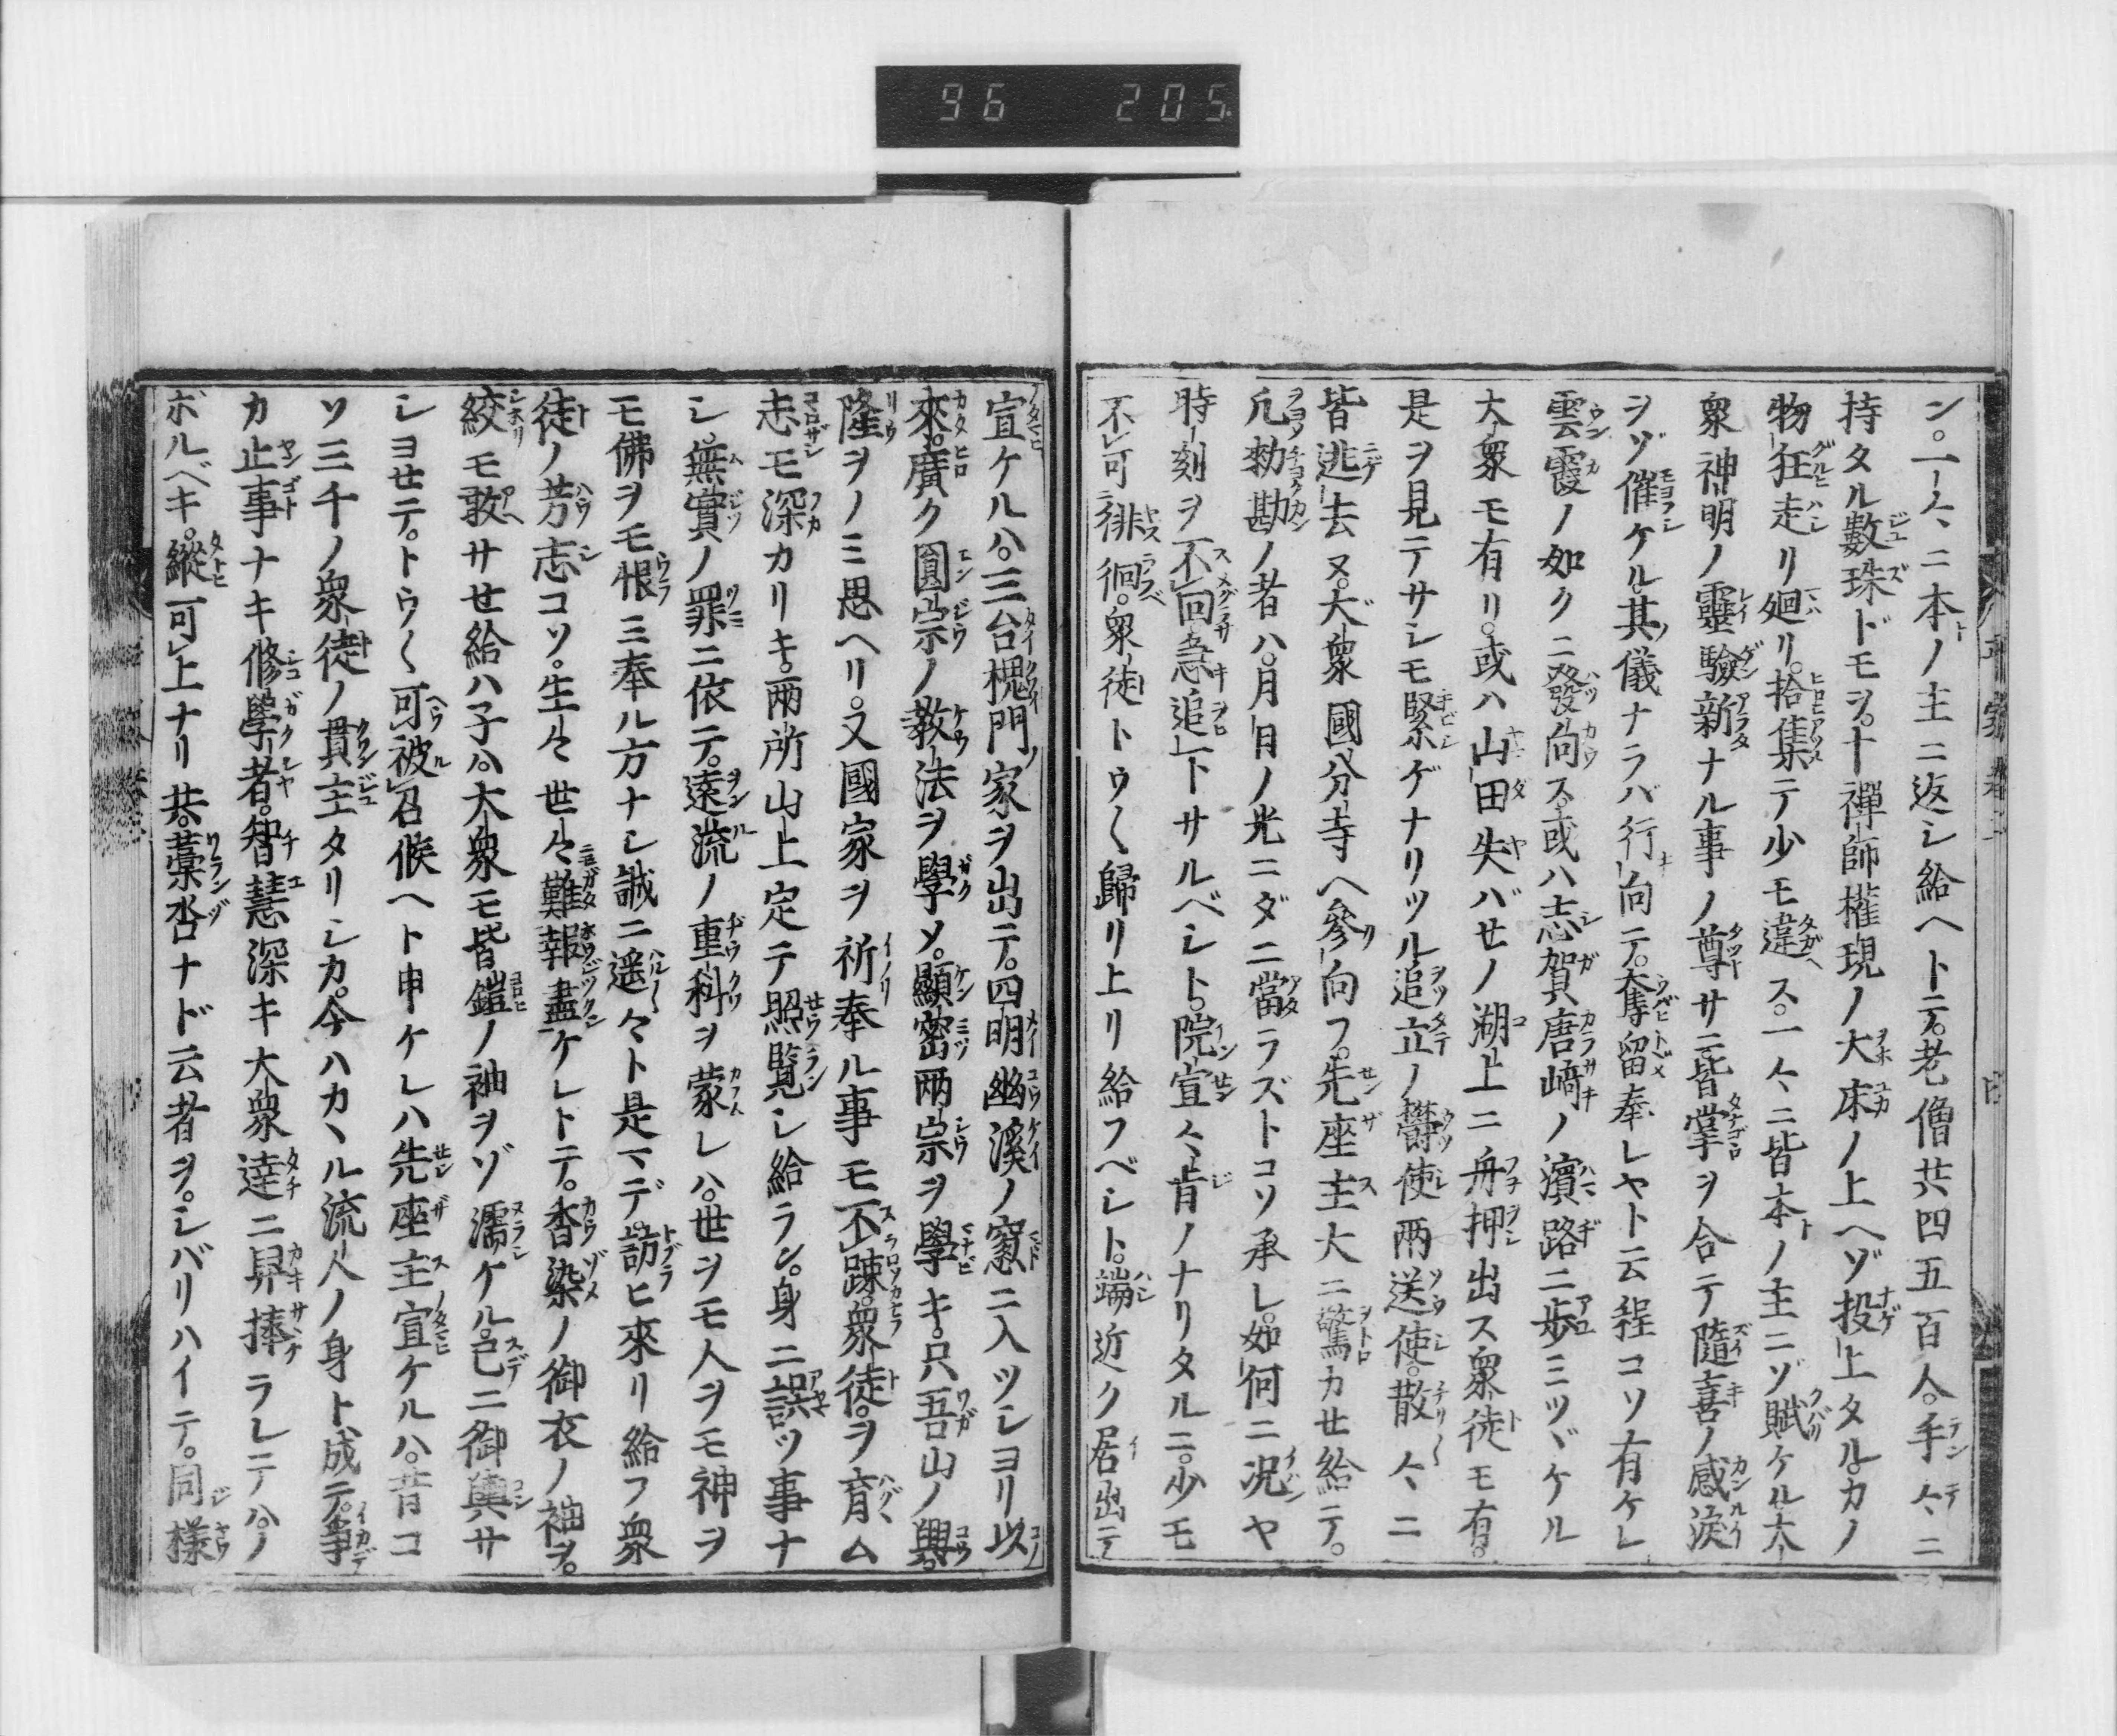 96 205
ン。一人々ニ本ノ主ニ返シ給ヘトテ。老僧共四五百人。手々ニ
持タル數珠ドモヲ。十禪師權現ノ大床ノ上ヘゾ投上タル。カノ
物狂走リ廻リ。拾集テ少モ違ス。一々ニ皆本ノ主ニゾ賦ケル。大
衆神明ノ靈驗新ナル事ノ尊サニ皆掌ヲ合テ隨喜ノ感淚
ヲゾ催ケル。其儀ナラバ行向テ。奪留奉レヤト云程コソ有ケレ
雲霞ノ如クニ發向ス。或ハ志賀唐崎ノ濱路ニ歩ミツヾケル
大衆モ有リ。或ハ山田矢バセノ湖上ニ舟押出ス衆徒モ有。
是ヲ見テサシモ緊ゲナリツル追立ノ欝使兩送使。散々ニ
皆逃去ヌ。大衆國分寺ヘ參向フ。先座主大ニ驚カせ給テ。
凡勅勘ノ者ハ。月日ノ光ニダニ當ラズトコソ承レ。如何ニ况ヤ
時刻ヲ不回急追下サルベシト。院宣々旨ノナリタルニ。少モ
不可徘徊。衆徒トウ〱歸リ上リ給フベシト。端近ク居出テ
宣ケルハ。三台槐門ノ家ヲ出テ。四明幽溪ノ窻ニ入ツシヨリ以
來。廣ク圓宗ノ教法ヲ學メ。顯密兩宗ヲ學キ。只吾山ノ興
隆ヲノミ思ヘリ。又國家ヲ祈奉ル事モ不踈。衆徒ヲ育ム
志モ深カリキ。兩所山上定テ照覽シ給ラン。身ニ誤ツ事ナ
シ。無實ノ罪ニ依テ。遠流ノ重科ヲ蒙レハ。世ヲモ人ヲモ神ヲ
モ佛ヲモ恨ミ奉ル方ナシ誠ニ遥々ト是マデ訪ヒ來リ給フ衆
徒ノ芳志コソ。生々世々難報盡ケレトテ。香染ノ御衣ノ袖ヲ。
絞モ敢サせ給ハ子ハ。大衆モ皆鎧ノ袖ヲゾ濡ケル。已ニ御輿サ
シヨせテ。トウ〱可被召候ヘト申ケレハ先座主宣ケルハ。昔コ
ソ三千ノ衆徒ノ貫主タリシカ。今ハカヽル流人ノ身ト成テ。爭
カ止事ナキ修學者。智慧深キ大衆達ニ舁捧ラレテハノ
ボルベキ。縱可上ナリ共。藁沓ナド云者ヲ。シバリハイテ。同樣